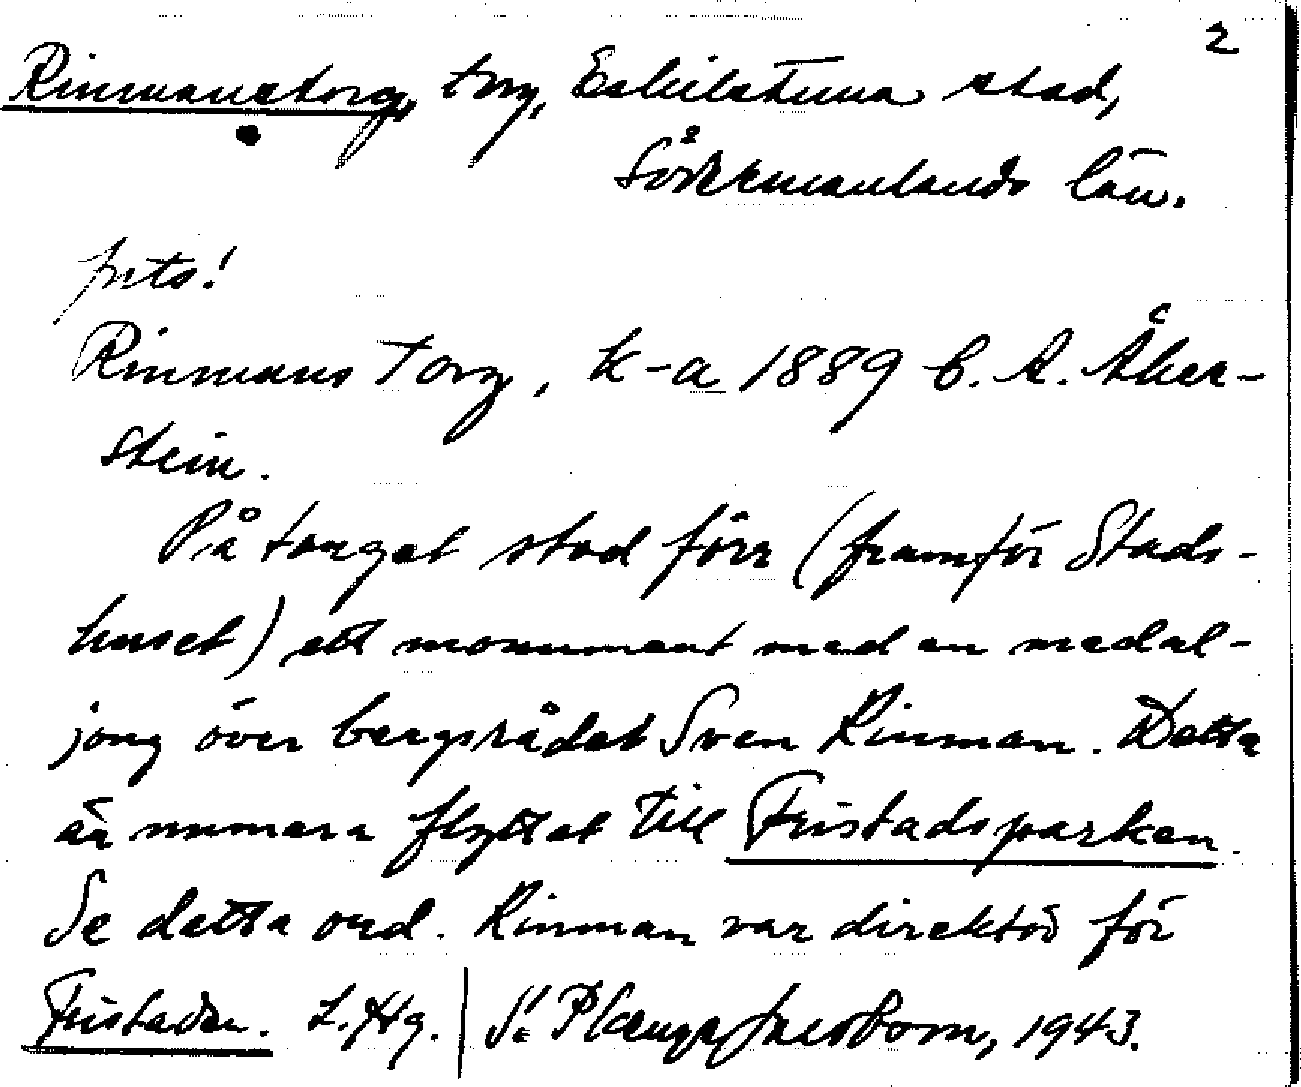 2
Rinmanstorg, torg, Eskilstuna stad,
Södermanlands län.
frts!
Rinmans Torg, k-a 1889 C. A. Åker-
stein.
På torget stod förr (framför Stads-
huset) ett monument med en medal-
jong över bergsrådet Sven Rinman. Detta
är numera flyttat till Fristadsparken.
Se detta ord. Rinman var direktör för
Fristaden. L. Hg. 1943.